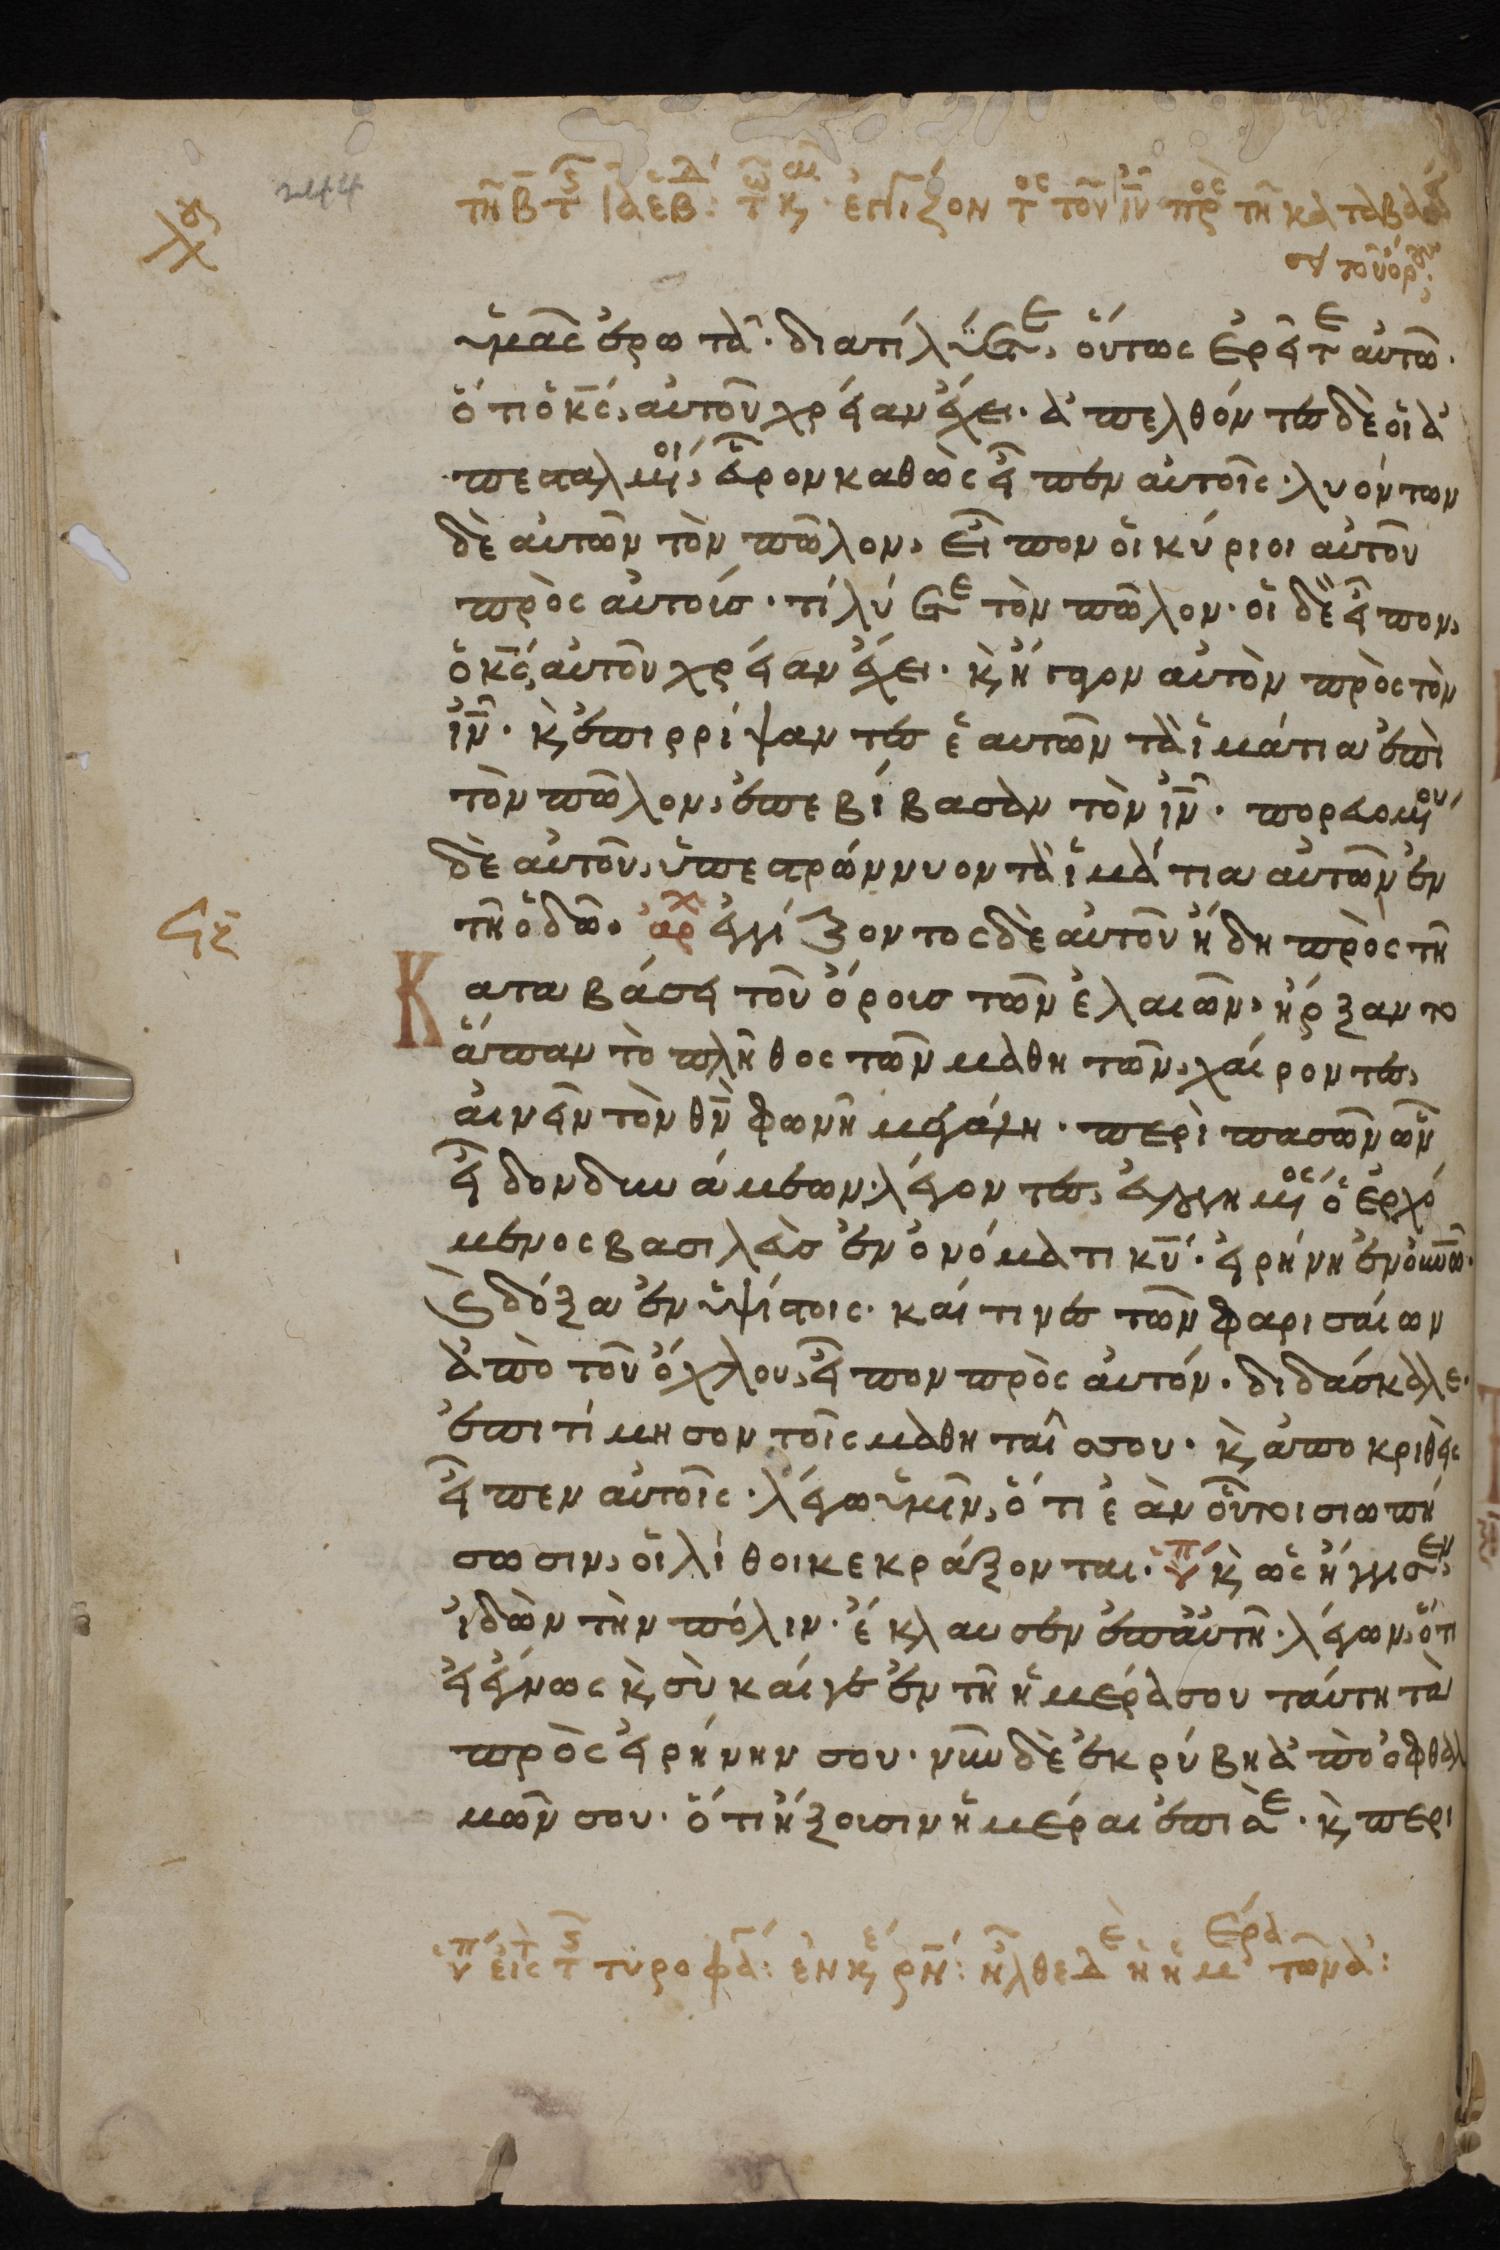 244
τῆ β̄ τ ιᾶ ἑβδ: τ κ ἐγγίζοντος τοῦ ἰῦ πρὸς τῆ καταβά
σει τοῦ ὄρους:
ὑμᾶς ἐρωτᾶ· διατί λύετε, οὕτως ἐρεῖτε αὐτῶ·
ὅτι ὁ κς, αὐτοῦ χρείαν ἔχει· ἀπελθόντες δὲ οἱ ἀ
πεσταλμένοι, εὗρον καθὼς εἶπεν αὐτοῖς· λυόντων
δὲ αὐτῶν τὸν πῶλον, εἶπον οἱ κύριοι αὐτοῦ
πρὸς αὐτούς· τί λύετε τὸν πῶλον· οἱ δὲ εἶπον,
ὁ κς, αὐτοῦ χρείαν ἔχει· κ ἤγαγον αὐτὸν πρὸς τὸν
ἰν· κ ἐπιρρίψαντες ἑαυτῶν τὰ ἱμάτια ἐπὶ
τὸν πῶλον, ἐπεβίβασαν τὸν ἰν· πορευομένου
δὲ αὐτοῦ, ὑπεστρώννυον τὰ ἱμάτια αὐτῶν ἐν
τῆ ὁδῶ· ἀρχ ἐγγίζοντος δὲ αὐτοῦ ἤδη πρὸς τῆ
Καταβάσει τοῦ ὄρους τῶν ἐλαιῶν, ἤρξαντο
ἅπαν τὸ πλῆθος τῶν μαθητῶν, χαίροντες,
αἰνεῖν τὸν θν φωνῆ μεγάλη· περὶ πασῶν ὧν
εἶδον δυνάμεων· λέγοντες, εὐλογημένος ὁ ἐρχό
μενος βασιλεὺς ἐν ὀνόματι κυ· εἰρήνη ἐν οὐνῶ·
κ δόξα ἐν ὑψίστοις· καί τινες τῶν φαρισαίων
ἀπὸ τοῦ ὄχλου, εἶπον πρὸς αὐτόν· διδάσκαλε·
ἐπιτίμησον τοῖς μαθηταῖς σου· κ ἀποκριθεὶς
εἶπεν αὐτοῖς· λέγω ὑμῖν, ὅτι ἐὰν οὗτοι σιωπή
σωσιν, οἱ λίθοι κεκράξονται· ὑπ κ ὡς ἤγγισεν,
ἰδὼν τὴν πόλιν· ἔκλαυσεν ἐπ' αὐτῆ· λέγων, ὅτι
εἰ ἔγνως κ σὺ καί γε ἐν τῆ ἡμέρα σου ταύτη τὰ
πρὸς εἰρήνην σου· νῦν δὲ ἐκρύβη ἀπὸ ὀφθαλ
μῶν σου· ὅτι ἥξουσιν ἡμέραι ἐπὶ σε· κ περι
ὑπ εἰς τ τυροφα: ἐν κ ρν: ἦλθε δὲ ἡ ἡμέρα τῶν ἀ: